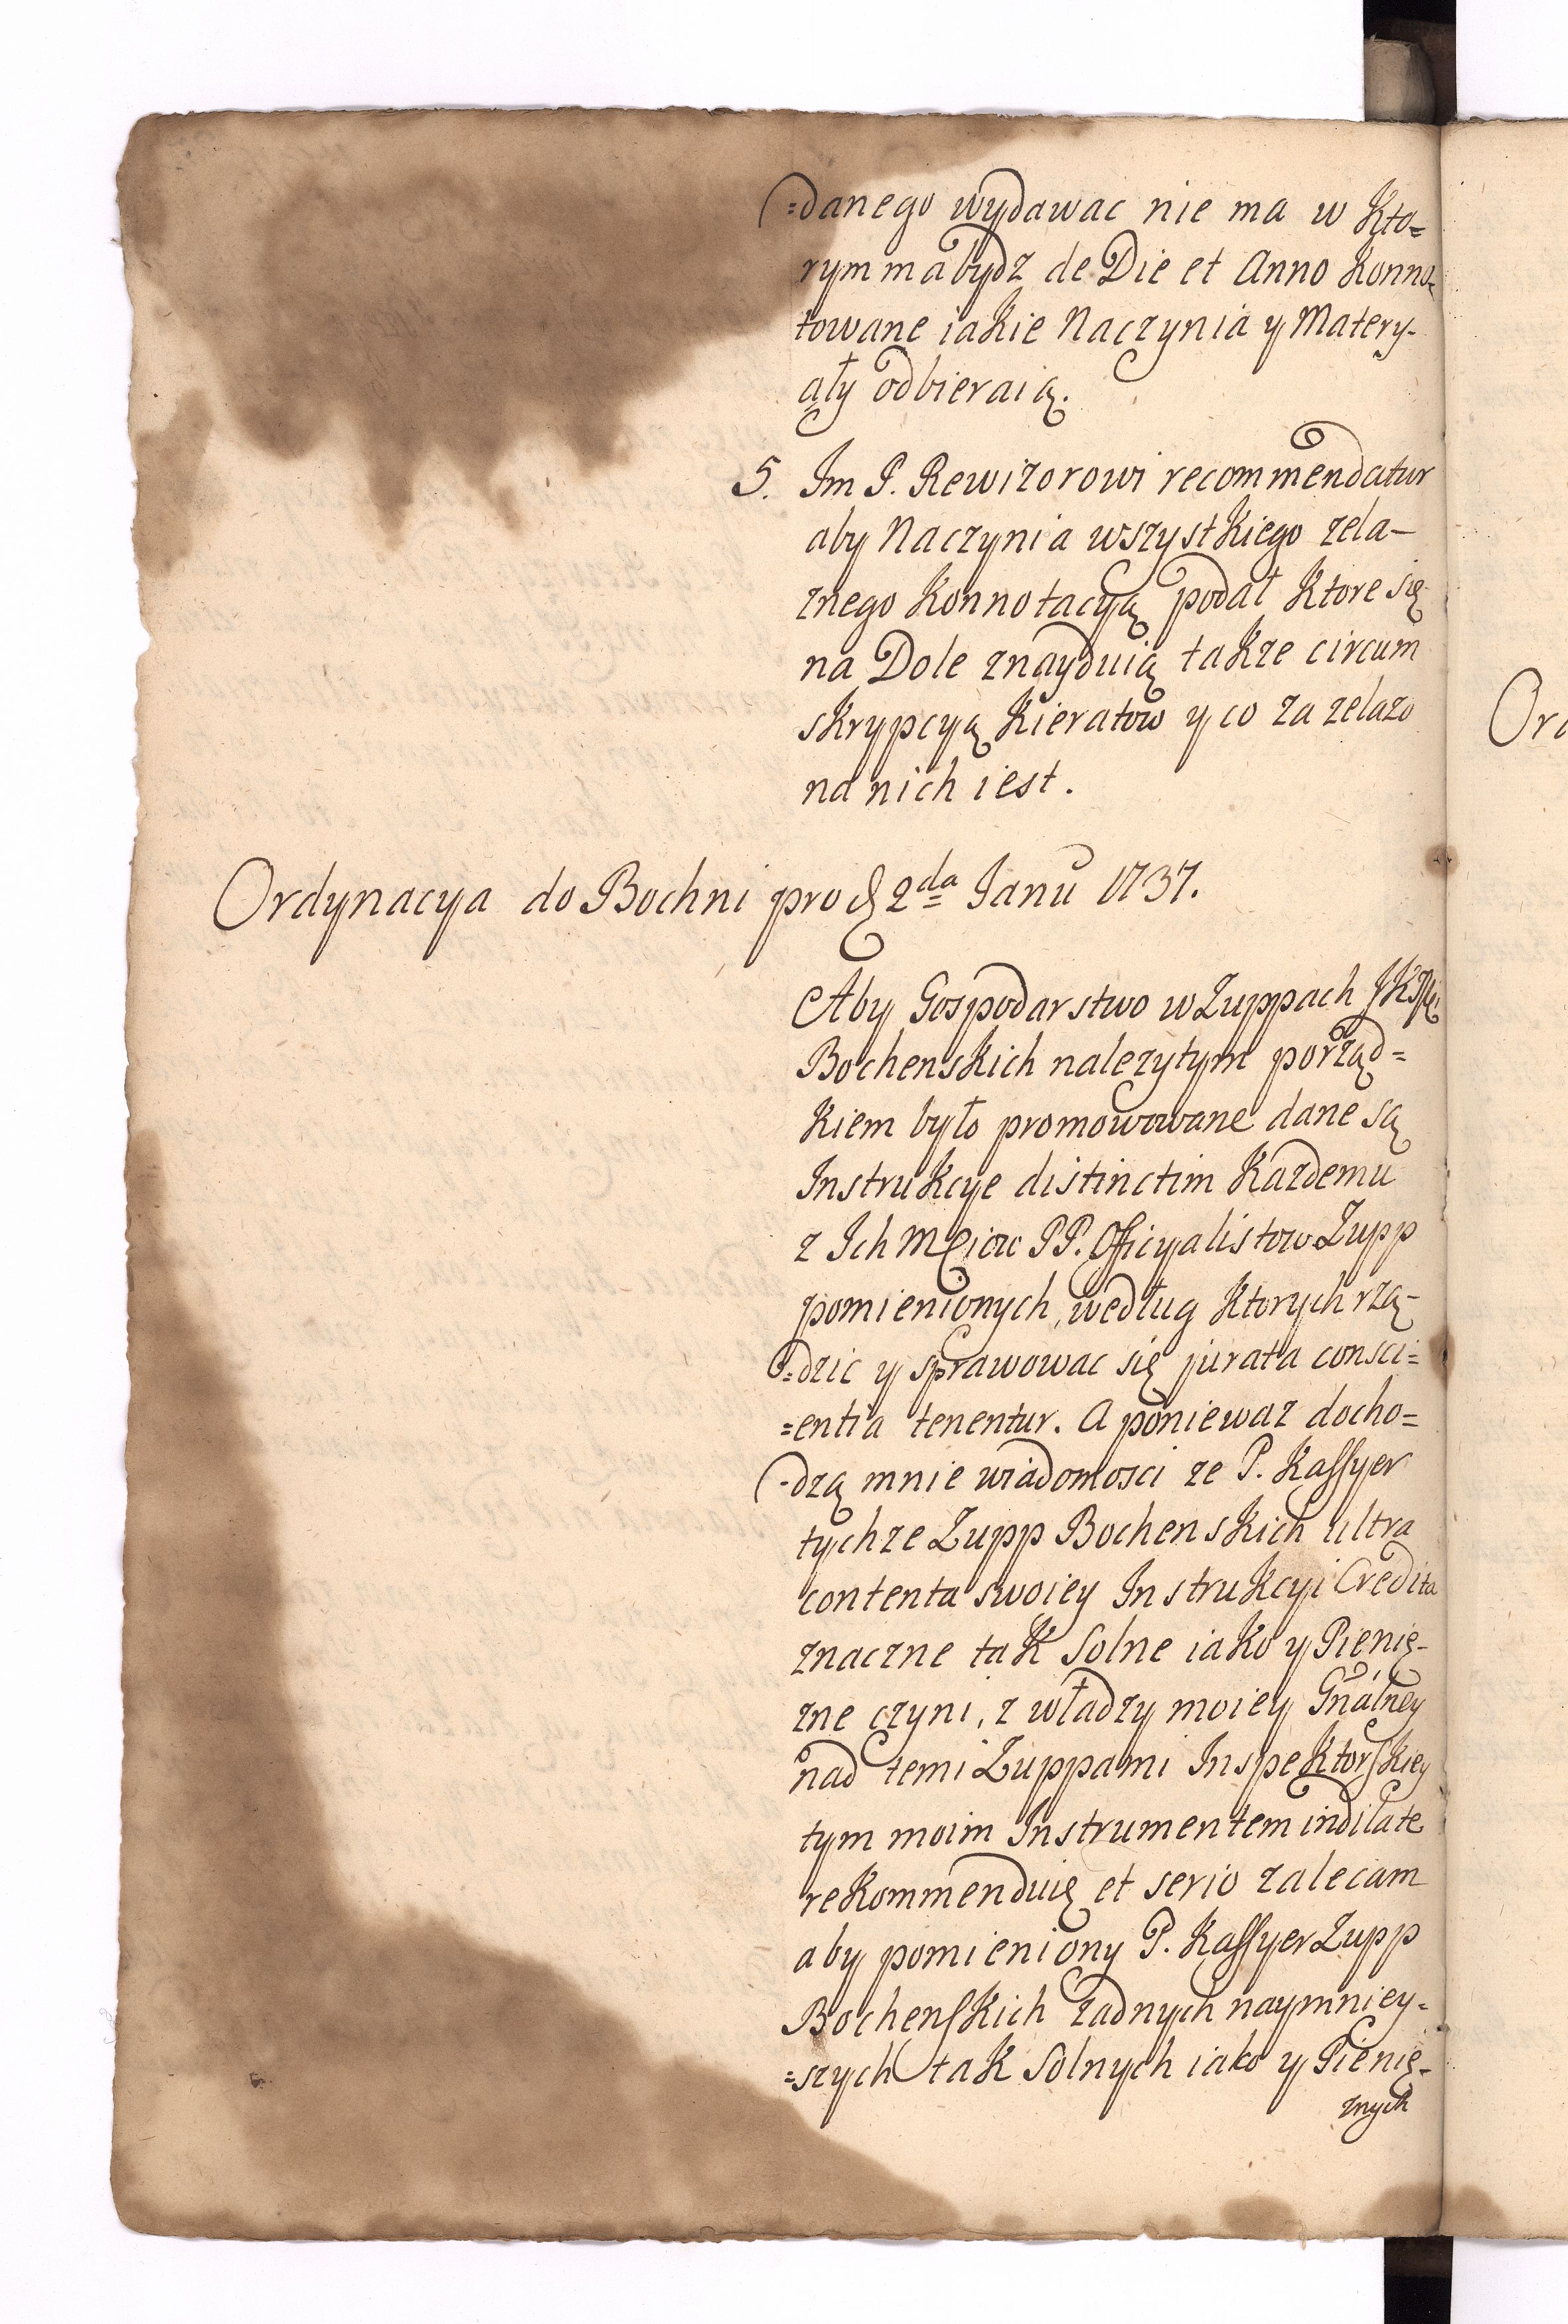 =danego wydawac nie ma w Kto=
rym ma bydz de Die et Anno Konno=
towane iakie Naczynia y Matery-
ały odbieraią.
5. Jm P. Rewizorowi recommendatur
aby Naczynia wszystkiego zela-
znego Konnotacyą podał Ktore się
na Dole znayduią takze circum
skrypcyą Kieratow y co za zelazo
na nich iest.
Ordynacya do Bochni pro 2da Ianu 1737.
Aby Gospodarstwo w Zuppach
Bochenskich nalezytym porząd=
Kiem było promowowane dane są
Instrukcye distinctim Kazdemu
z Ich Mciow PP. Officyalistow Zupp
pomienionych, według Ktorych rzą-
=dzic y sprawowac się jurata consci=
=entia tenentur. A poniewaz docho=
-dzą mnie wiadomosci ze P. Kassyer
tychze Zupp Bochenskich ultra
contenta swoiey Instrukcyi Credita
znaczne tak Solne iako y Pienię-
zne czyni, z władzy moiey Gnałney
nad temi Zuppami Inspektorskiey
tym moim Instrumentem indilate
rekommenduię et serio zalecam
aby pomieniony P. Kassyer Zupp
Bochenskich zadnych naymniey=
=szych tak Solnych iako y Pienię-
znych
Ord